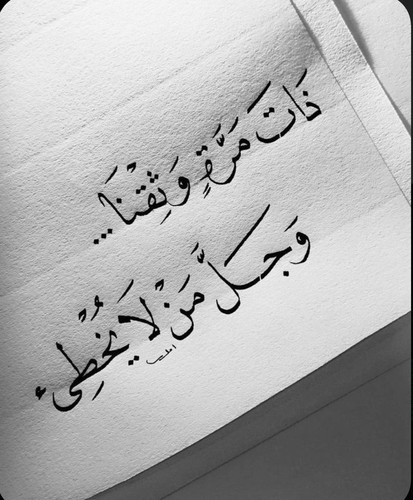 ذَاتَ مَرَّةٍ وَثِقْنَا...
وَجَلَّ مَنْ لَا يُخْطِىء